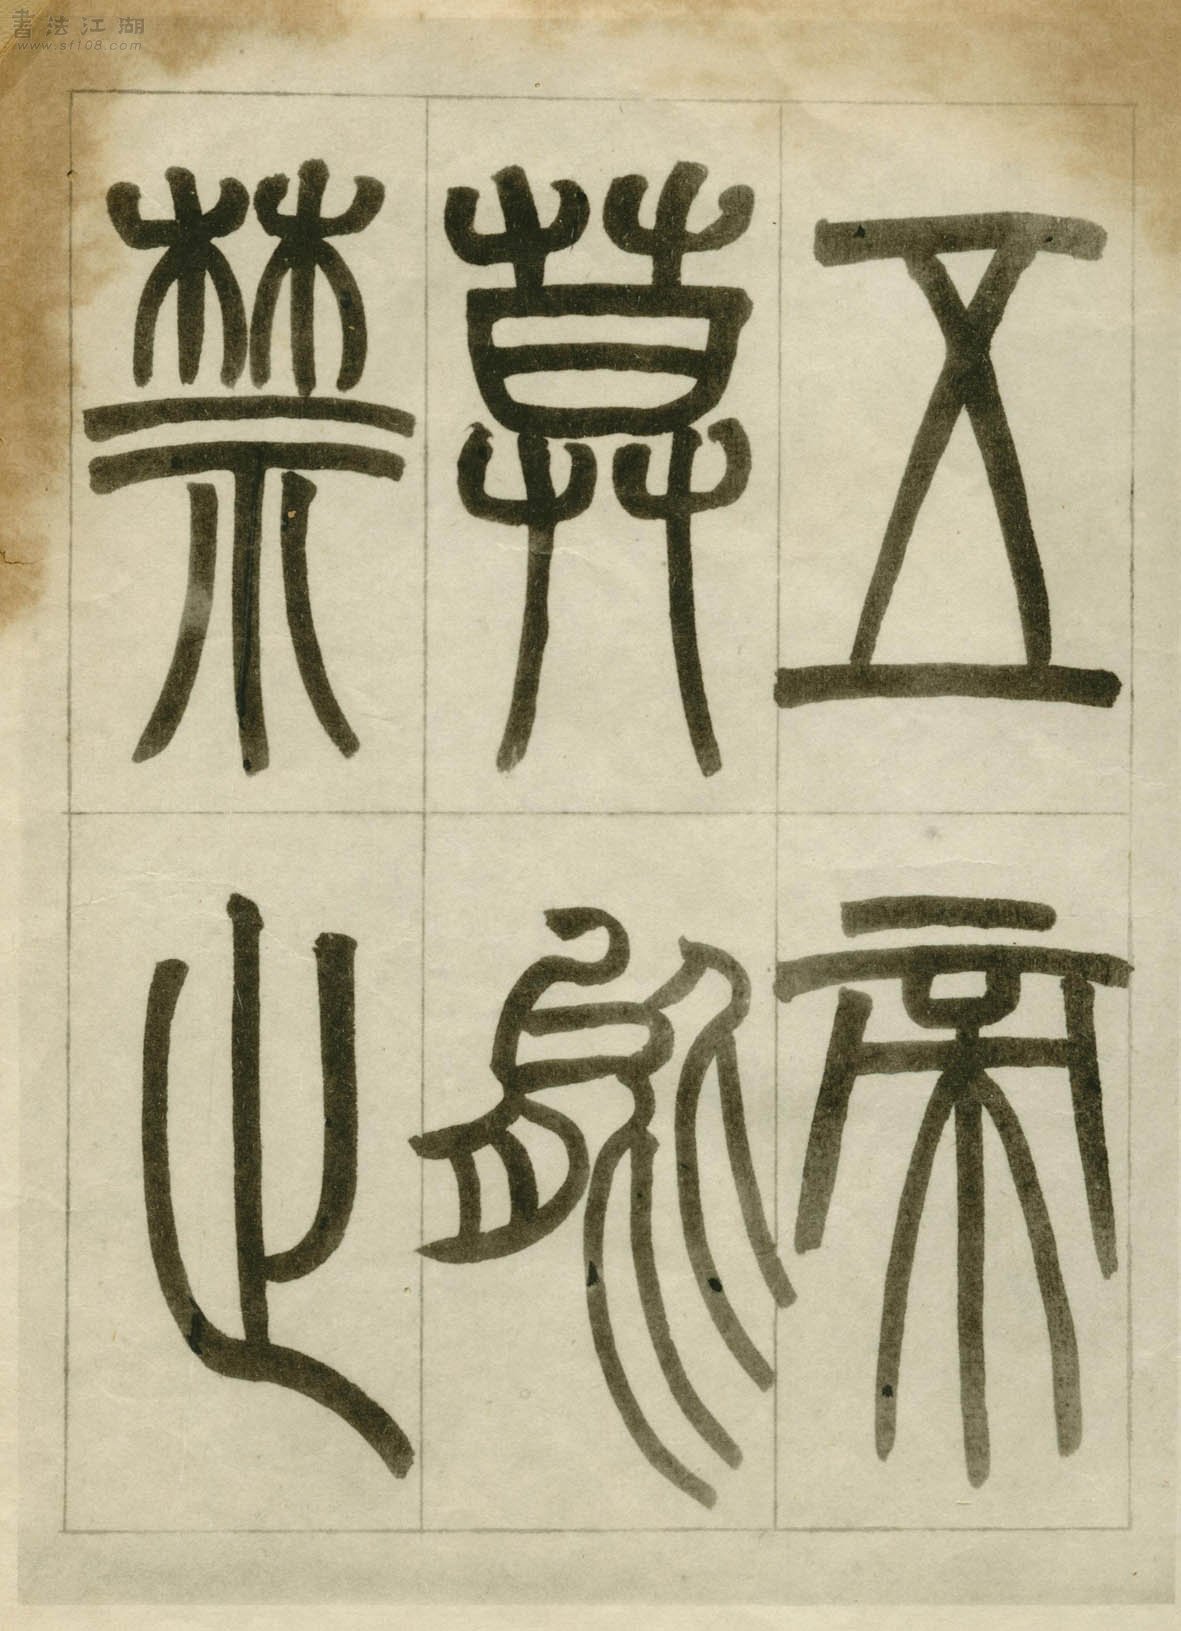 書法江湖
www.sf108.com
五帝
莫能
禁止